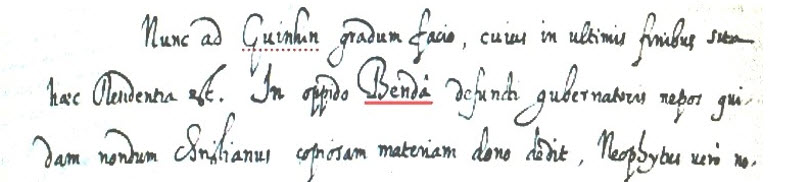 Nunc ad Quinhin gradum facio, cuius in ultimis finibus sita
hæc Residentia est. In oppido Bendâ defuncti gubernatoris nepos qui-
dam nondum Christianus copiosam materiam dono dedit, Neophytus uero no-